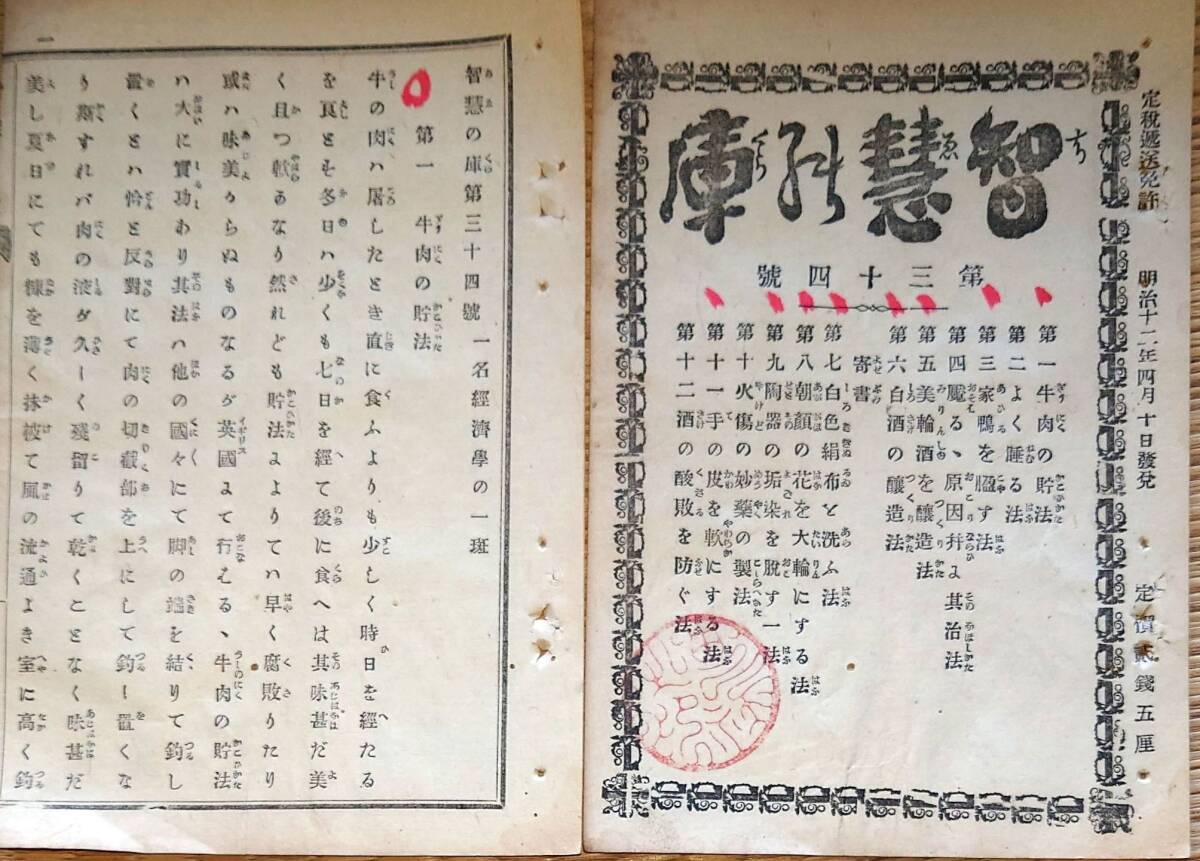 定税遞送免許 明治十二年四月十日發兌 定價貳錢五厘
智慧の庫
第三十四號
第一 牛肉の貯法
第二 よく睡る法
第三 家鴨を膃す法
第四 魘るゝ原因幷よ其治法
第五 美輪酒を釀造法
第六 白酒の釀造法
寄書
第七 白色絹布を洗ふ法
第八 朝顔の花を大輪にする法
第九 陶器の垢染を脱す一法
第十 火傷の妙藥の製法
第十一 手の皮を軟にする法
第十二 酒の酸敗を防ぐ法
智慧の庫第三十四號 一名經濟學の一斑
第一 牛肉の貯法
牛の肉ハ屠したとき直に食ふよりも少しく時日を經たる
を良とも冬日ハ少くも七日を經て後に食へは其味甚だ美
く且つ軟るなり然れども貯法よよりてハ早く腐敗りたり
或ハ味美からぬものなるが英國よて行むる、牛肉の貯法
ハ大に實功わり其法ハ他の國々にて脚の端を結りて釣し
置くとハ恰と反對にて肉の切截部を上にして釣ー置くな
り爾すれバ肉の液が久ーく殘留りて乾くことなく味甚だ
美し夏日にても糠を薄く抹被て風の流通よき室に高く釣
一